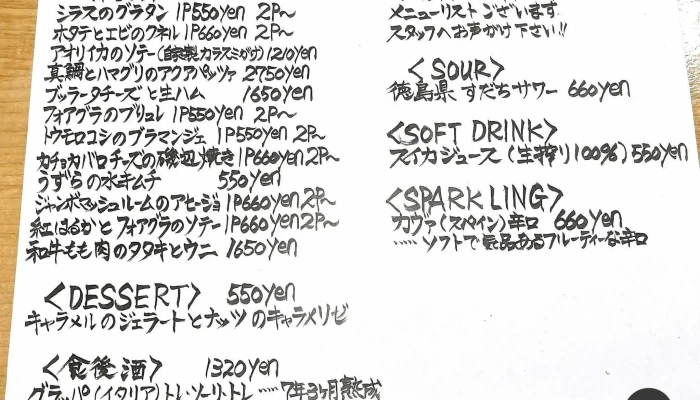 シラスのグラタン 1P550yen 2P〜
ホタテとエビのクネル 1P660yen 2P〜
アオリイカのソテー(自家製カラスミがけ)1210yen
真鯛とハマグリのアクアパッツァ 2750yen
ブッラータチーズと生ハム 1650yen
フォアグラのブリュレ 1P550yen 2P〜
トウモロコシのブラマンジェ 1P550yen 2P〜
カチョカバロチーズの磯辺焼き 1P660yen 2P〜
うずらの水キムチ 550yen
ジャンボマッシュルームのアヒージョ 1P660yen 2P〜
紅はるかとフォアグラのソテー 1P660yen 2P〜
和牛もも肉のタタキとウニ 1650yen
<DESSERT> 550yen
キャラメルのジェラートとナッツのキャラメリゼ
<食後酒> 1320yen
グラッパ(イタリア)トレ・ソーリ・トレ ……7年3ヶ月熟成
メニューリストございます
スタッフへお声がけ下さい!!
<SOUR>
徳島県 すだちサワー 660yen
<SOFT DRINK>
スイカジュース (生搾り100%) 550yen
<SPARKLING>
カヴァ(スペイン)辛口 660yen
……ソフトで気品あるフルーティーな辛口